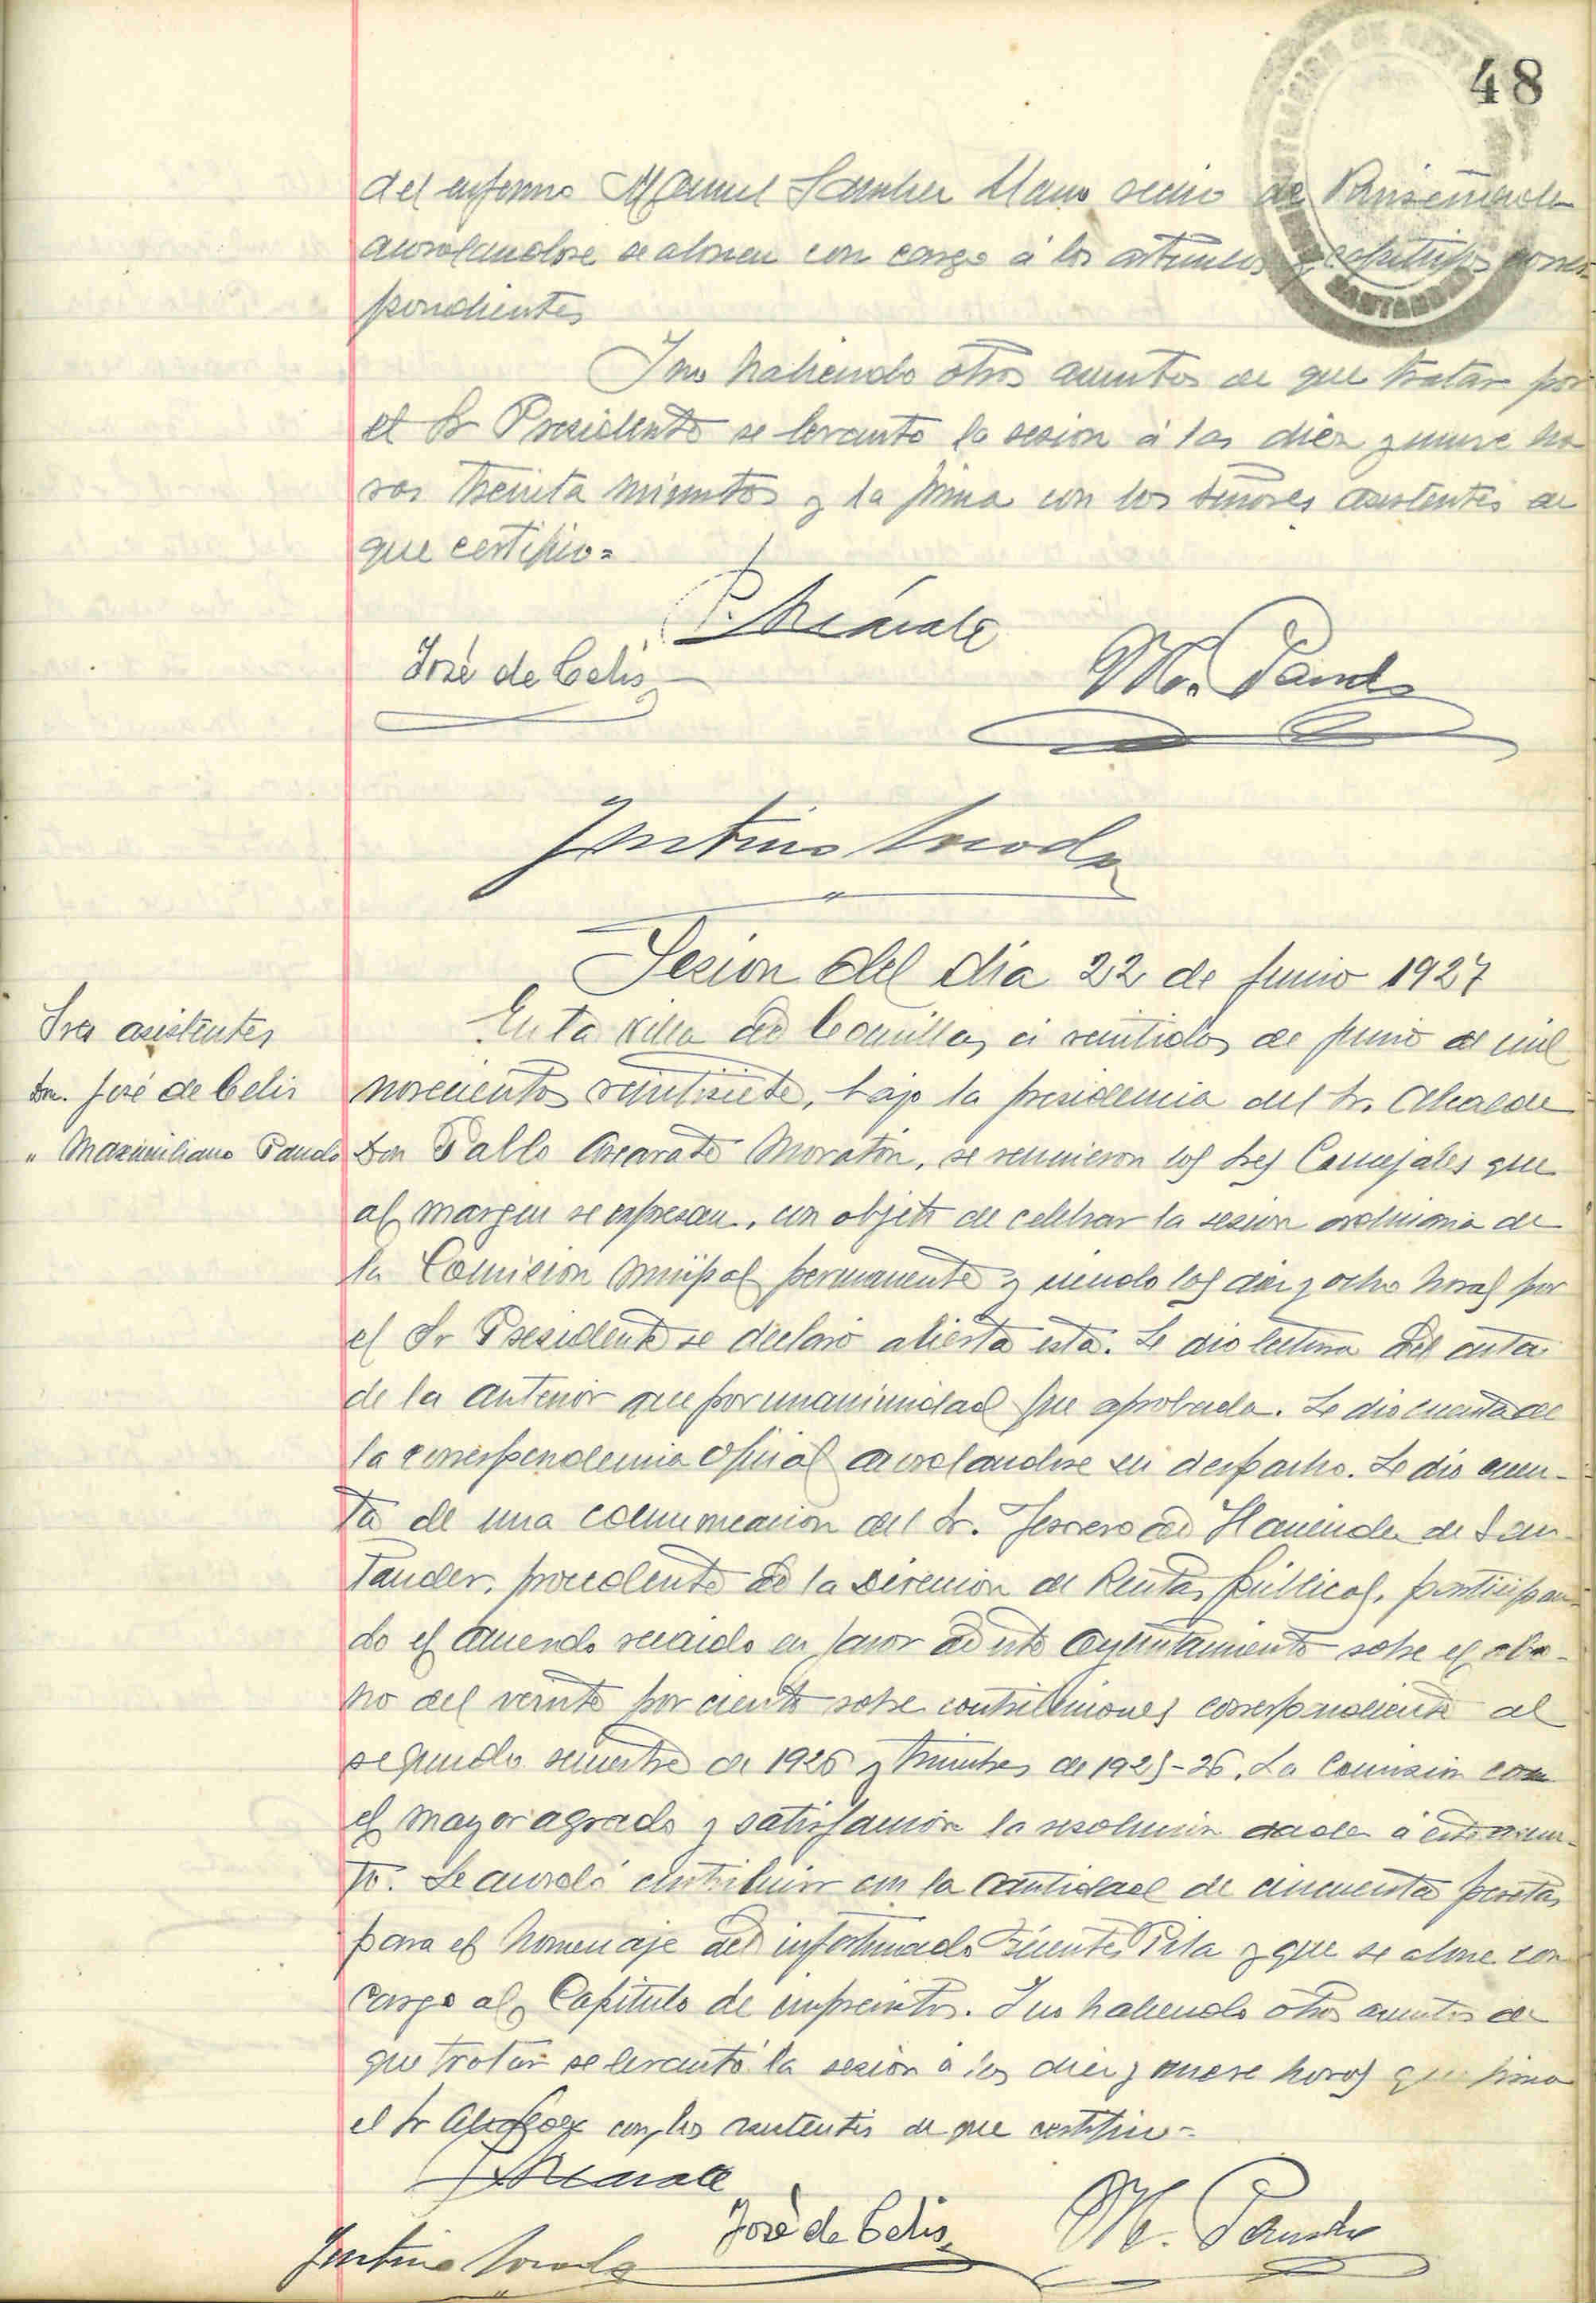 48
del enfermo Manuel Sanchez Llano vecino de Ruiseñada
acordandose se abonen con cargo á los artículos y capitulos corres-
pondientes
Y no habiendo otros asuntos de que tratar por
el Sr Presidente se levanto la sesion á las diez y nueve ho
ras treinta minutos y la firma con los señores asistentes de
que certifico=
P. Azcárate
José de Celis
M. Pando
Sesion del dia 22 de Junio 1927
Sres asistentes
Dn. José de Celis
" Maximiliano Pando
En la Villa de Comillas á veintidos de Junio de mil
novecientos veintisiete, bajo la presidencia del Sr. Alcalde
Don Pablo Azcarate Moratón, se reunieron los Sres Concejales que
al margen se expresan, con objeto de celebrar la sesion ordinaria de
la Comision permanente y siendo las diez y ocho horas por
el Sr Presidente se declaró abierta esta. Se dio lectura del acta
de la anterior que por unanimidad fue aprobada. Se dio cuenta de
la correspondencia oficial acordandose su despacho. Se dio cuen-
ta de una comunicacion del Sr. Tesorero de Hacienda de San-
tander, procedente de la Direccion de Rentas públicas, participan-
do el acuerdo recaido en favor de este Ayuntamiento sobre el abo-
no del veinte por ciento sobre contribuciones correspondiente al
segundo semestre de 1926 y trimestres de 1925-26. La Comision con
el mayor agrado y satisfaccion la resolucion dada á este asun-
to. Se acordó contribuir con la cantidad de cincuenta pesetas
para el homenaje del infortunado Pila y que se abone con
cargo al Capitulo de imprevistos. Y no habiendo otros asuntos de
que tratar se levantó la sesion á las diez y nueve horas que firma
el Sr con los de que certifico=
P. Azcárate
José de Celis
M. Pando